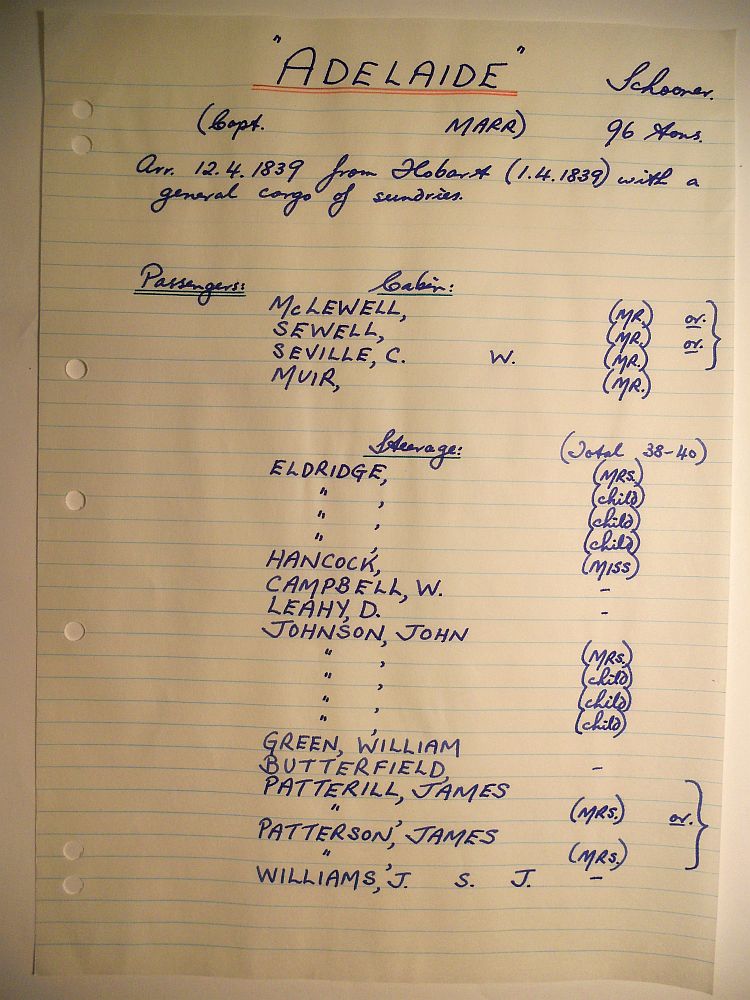 "ADELAIDE" Schooner.
(Capt. MARR) 96 tons.
Arr. 12.4.1839 from Hobart (1.4.1839) with a
general cargo of sundries.
Passengers: Cabin:
McLEWELL, (MR.) or.
SEWELL, (MR.) or.
SEVILLE, C. W. (MR.)
MUIR, (MR.)
Steerage: (Total 38-40)
ELDRIDGE, (MRS.)
" , (child)
" , (child)
" , (child)
HANCOCK, (MISS)
CAMPBELL, W. -
LEAHY, D. -
JOHNSON, JOHN
" , (MRS.)
" , (child)
" , (child)
" , (child)
GREEN, WILLIAM
BUTTERFIELD, -
PATTERILL, JAMES
" , (MRS.) or.
PATTERSON, JAMES
" , (MRS.)
WILLIAMS, J. S. J. -